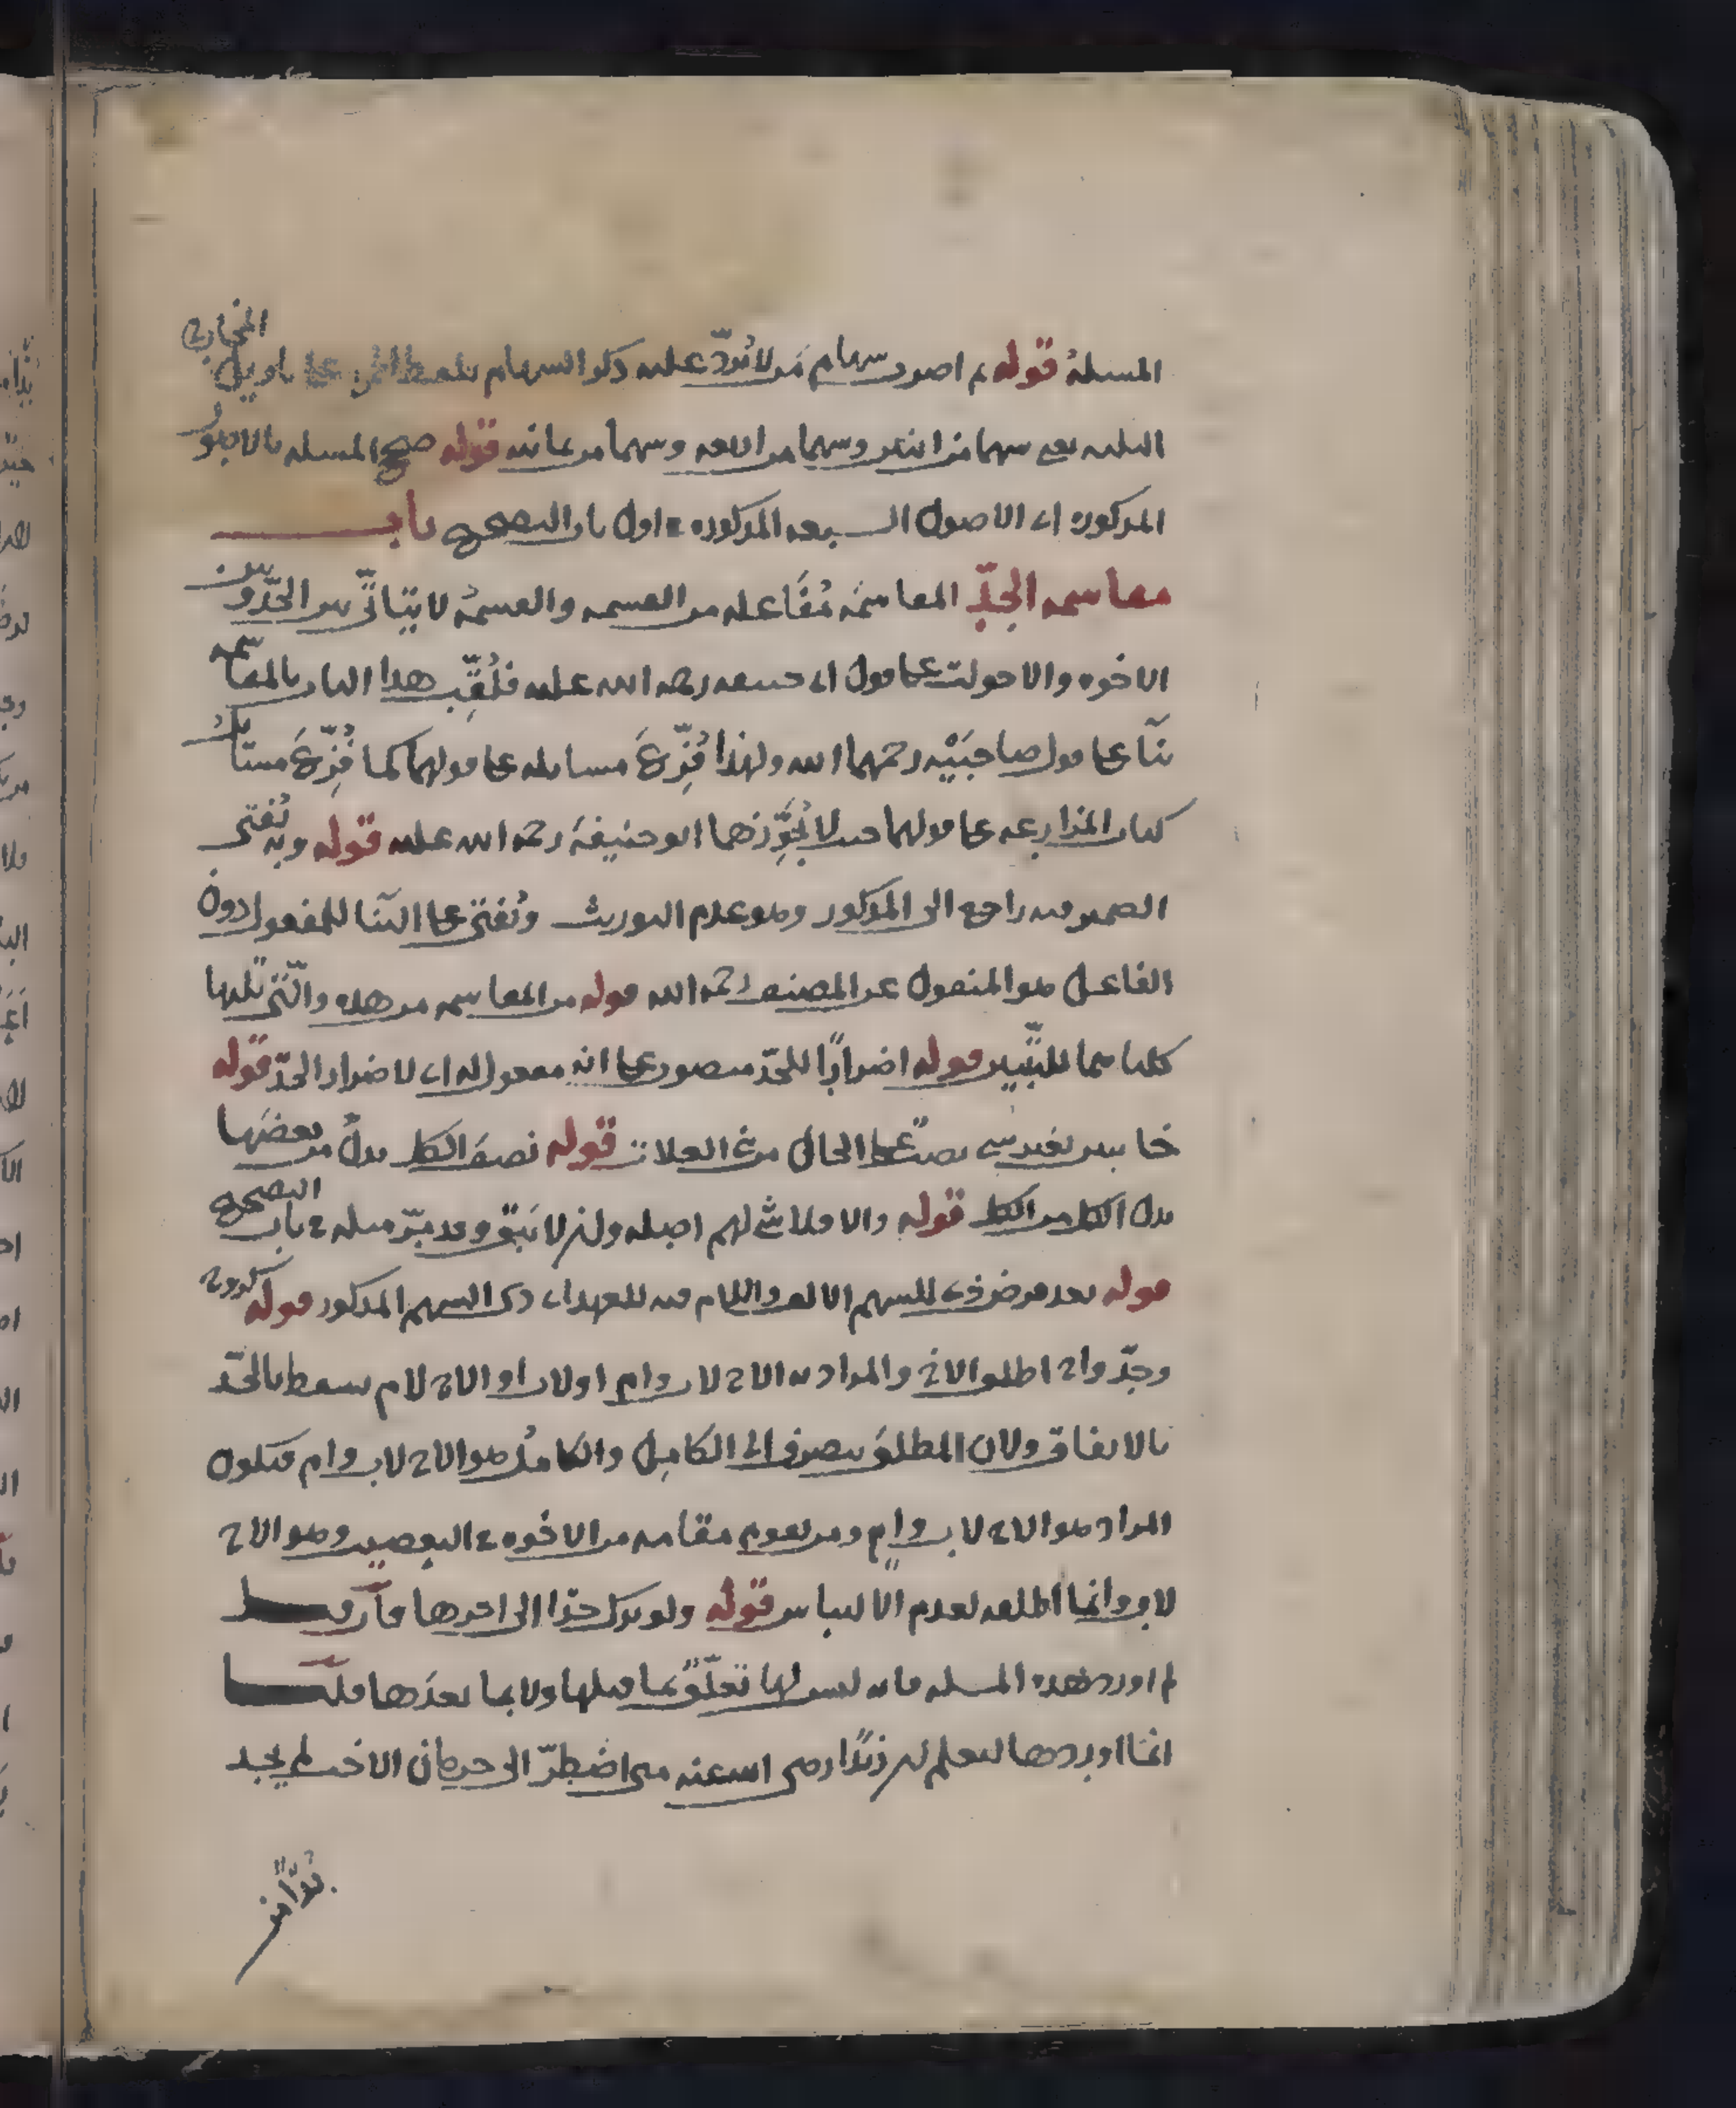 المسلة قوله ثم اضرب سهام من لا يرد عليه ذكر السهام بلفظ الجمع على تاويل المخارج
الثلثة يعني سهما من اثنين وسهما من اربعة وسهما من ثمانية قوله صحح المسلة بالاصول
المذكورة اي الاصول السبعة المذكورة في اول باب التصحيح باب
مقاسمة الجد المقاسمة مفاعلة من القسمة والقسمة لا يتاتى بين الجد وبين
الاخوة والاخوات على قول ابي حنيفة رحمة الله عليه فلقب هذا الباب بالمقاسمة
بنآ على قول صاحبيه رحمهما الله ولهذا فرع مسايله على قولهما كما فرع مسايل
كتاب المزارعة على قولهما حيث لا يجوزها ابو حنيفة رحمة الله عليه قوله وبه يفتى
الضمير فيه راجع الى المذكور وهو عدم التوريث ويفتى على البنآ للمفعول دون
الفاعل هو المنقول عن المصنف رحمه الله قوله من المقاسمة من هذه والتي تليها
كلتاهما للتبيين قوله اضرارًا للجد منصوب على انه مفعول له اي لاضرار الجد قوله
خايبين بغير شي نصب على الحال من بني العلات قوله نصف الكل بدل من بعضها
بدل الكل من الكل قوله والا فلا شي لهم اصله وان لا تبق وقد مر مثله في باب التصحيح
قوله بعد فرض ذي السهم الالف واللام فيه للعهد اي ذي السهم المذكور قوله
وجد واخ اطلق الاخ والمراد به الاخ لاب وام او لاب اذ الاخ لام يسقط بالجد
بالاتفاق ولان المطلق ينصرف الى الكامل والكامل هو الاخ لاب وام فيكون
المراد هو الاخ لاب وام ومن يقوم مقامه من الاخوة في التعصيب وهو الاخ
لاب وانما اطلقه لعدم الالتباس قوله ولو ترك جدا الى اخرها فان قيل
لم اورد هذه المسلة فانه ليس لها تعلق بما قبلها ولا بما بعدها قلنا
انما اوردها ليعلم ان زيدًا رضي الله عنه متى اضطر الى حرمان الاخت لم يجد